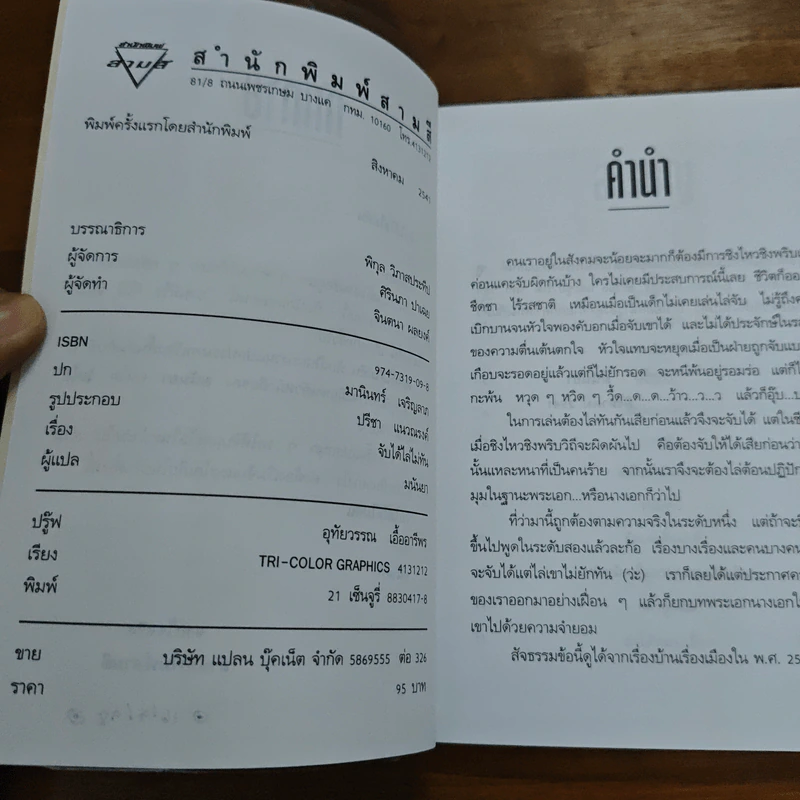 สำนักพิมพ์
สามสี
สำนักพิมพ์สามสี
81/8 ถนนเพชรเกษม บางแค กทม. 10160 โทร.4131212
พิมพ์ครั้งแรกโดยสำนักพิมพ์
สิงหาคม 2541
บรรณาธิการ พิกุล วิภาสประทีป
ผู้จัดการ ศิรินภา ปาเฉย
ผู้จัดทำ จินตนา ผลยงค์
ISBN 974-7319-09-8
ปก มานินทร์ เจริญลาภ
รูปประกอบ ปรีชา แนวณรงค์
เรื่อง จับได้ไล่ไม่ทัน
ผู้แปล มนันยา
ปรู๊ฟ อุทัยวรรณ เอื้ออารีพร
เรียง TRI-COLOR GRAPHICS 4131212
พิมพ์ 21 เซ็นจูรี่ 8830417-8
ขาย บริษัท แปลน บุ๊คเน็ต จำกัด 5869555 ต่อ 326
ราคา 95 บาท
คำนำ
คนเราอยู่ในสังคมจะน้อยจะมากก็ต้องมีการชิงไหวชิงพริบ
ค่อนแคะจับผิดกันบ้าง ใครไม่เคยมีประสบการณ์นี้เลย ชีวิตก็ออ
ชืดชา ไร้รสชาติ เหมือนเมื่อเป็นเด็กไม่เคยเล่นไล่จับ ไม่รู้ถึง
เบิกบานจนหัวใจพองคับอกเมื่อจับเขาได้ และไม่ได้ประจักษ์ใน
ของความตื่นเต้นตกใจ หัวใจแทบจะหยุดเมื่อเป็นฝ่ายถูกจับ
เกือบจะรอดอยู่แล้วแต่ก็ไม่ยักรอด จะหนีพ้นอยู่รอมร่อ แต่ก็
กะพ้น หวุด ๆ หวิด ๆ วี้ด...ด...ด...ว้าว...ว...ว แล้วก็อุ๊บ
ในการเล่นต้องไล่ทันกันเสียก่อนแล้วจึงจะจับได้ แต่ใน
เมื่อชิงไหวชิงพริบวิถีจะผิดผันไป คือต้องจับให้ได้เสียก่อนว่า
นั้นแหละหนาที่เป็นคนร้าย จากนั้นเราจึงจะต้องไล่ต้อนปฏิปัก
มุมในฐานะพระเอก...หรือนางเอกก็ว่าไป
ที่ว่ามานี้ถูกต้องตามความจริงในระดับหนึ่ง แต่ถ้าจะ
ขึ้นไปพูดในระดับสองแล้วละก้อ เรื่องบางเรื่องและคนบางคน
จะจับได้แต่ไล่เขาไม่ยักทัน (ว่ะ) เราก็เลยได้แต่ประกาศ
ของเราออกมาอย่างเฝื่อน ๆ แล้วก็ยกบทพระเอกนางเอก
เขาไปด้วยความจำยอม
สัจธรรมข้อนี้ดูได้จากเรื่องบ้านเรื่องเมืองใน พ.ศ. 25